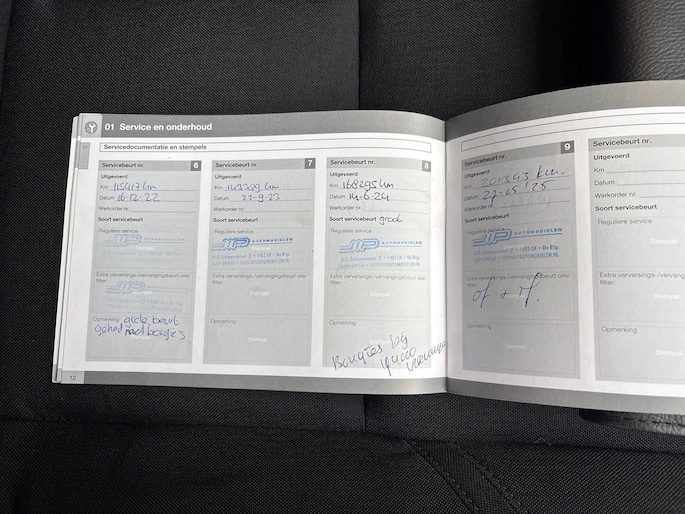 01 Service en onderhoud
Servicedocumentatie en stempels
Servicebeurt nr. 6
Uitgevoerd
Km 115417 km
Datum 16-12-22
Werkorder nr.
Soort servicebeurt
Reguliere service
JMP AUTOMOBIELEN
Extra verversings-/vervangingsbeurt olie/
filter:
JMP AUTOMOBIELEN
Opmerking grote beurt
gehad met bougie's
Servicebeurt nr. 7
Uitgevoerd
Km 143369 km
Datum 21-9-23
Werkorder nr.
Soort servicebeurt
Reguliere service
JMP AUTOMOBIELEN
Extra verversings-/vervangingsbeurt olie/
filter:
Stempel
Opmerking
Stempel
Servicebeurt nr. 8
Uitgevoerd
Km 168295 km
Datum 14-6-24
Werkorder nr.
Soort servicebeurt groot
Reguliere service
JMP AUTOMOBIELEN
Extra verversings-/vervangingsbeurt olie/
filter:
Stempel
Opmerking
Bougies bij
Servicebeurt nr. 9
Uitgevoerd
Km 201343 km.
Datum 27-05-'25
Werkorder nr.
Soort servicebeurt
Reguliere service
JMP AUTOMOBIELEN
Extra verversings-/vervangingsbeurt olie/
filter:
of + rf.
Opmerking
Stempel
Servicebeurt nr.
Uitgevoerd
Km
Datum
Werkorder nr.
Soort servicebeurt
Reguliere service
Stempel
Extra verversings-/vervangings
filter:
Stempel
Opmerking
Stempel
12